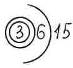 3 6 15